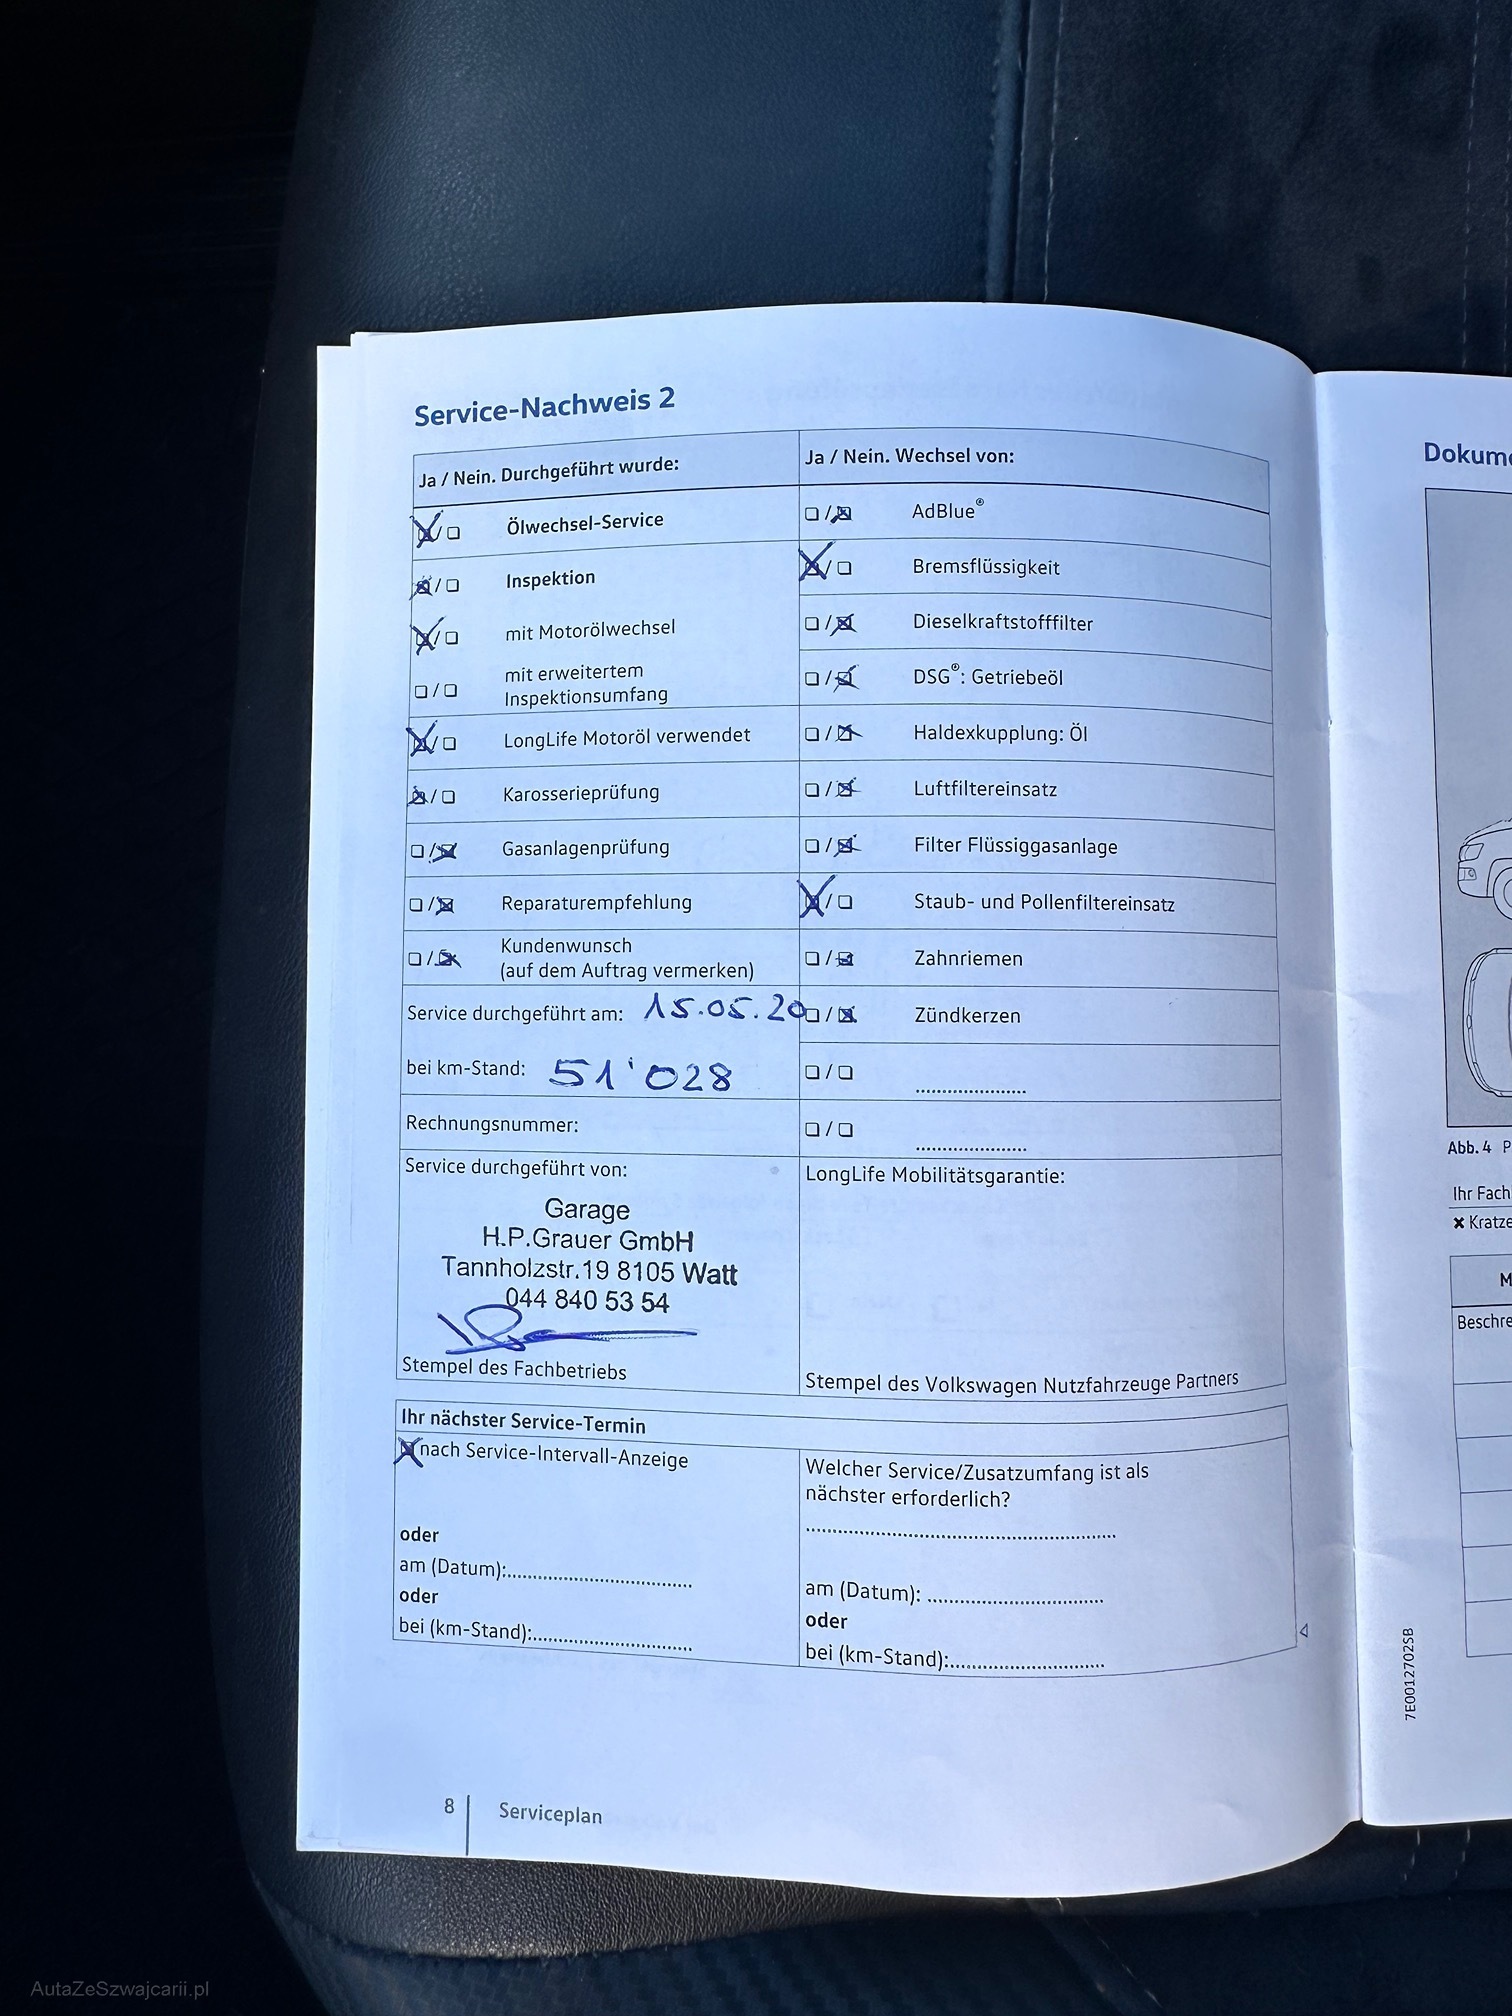 Service-Nachweis 2
Ja / Nein. Durchgeführt wurde:
Ölwechsel-Service
Inspektion
mit Motorölwechsel
mit erweitertem
Inspektionsumfang
LongLife Motoröl verwendet
Karosserieprüfung
Gasanlagenprüfung
Reparaturempfehlung
Kundenwunsch
(auf dem Auftrag vermerken)
Service durchgeführt am: 15.05.20
bei km-Stand: 51'028
Rechnungsnummer:
Service durchgeführt von:
Garage
H.P.Grauer GmbH
Tannholzstr.19 8105 Watt
044 840 53 54
Stempel des Fachbetriebs
Ja / Nein. Wechsel von:
AdBlue®
Bremsflüssigkeit
Dieselkraftstofffilter
DSG®: Getriebeöl
Haldexkupplung: Öl
Luftfiltereinsatz
Filter Flüssiggasanlage
Staub- und Pollenfiltereinsatz
Zahnriemen
Zündkerzen
LongLife Mobilitätsgarantie:
Stempel des Volkswagen Nutzfahrzeuge Partners
Ihr nächster Service-Termin
nach Service-Intervall-Anzeige
oder
am (Datum):
oder
bei (km-Stand):
Welcher Service/Zusatzumfang ist als
nächster erforderlich?
am (Datum):
oder
bei (km-Stand):
8 Serviceplan
Dokume
Abb. 4 P
Ihr Fach
Kratze
M
Beschre
7E0012702SB
AutaZeSzwajcarii.pl